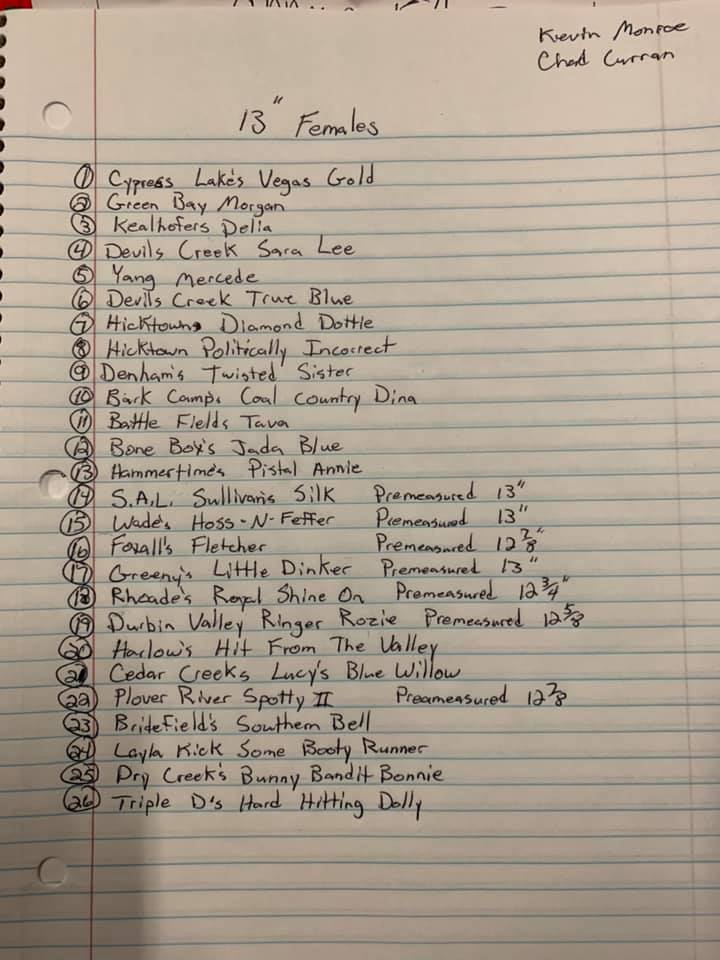 Kevin Monroe
Chad Curran
13" Females
① Cypress Lake's Vegas Gold
② Green Bay Morgan
③ Kealhofers Delia
④ Devils Creek Sara Lee
⑤ Yang Mercede
⑥ Devils Creek True Blue
⑦ Hicktowns Diamond Dottie
⑧ Hicktown Politically Incorrect
⑨ Denham's Twisted Sister
⑩ Bark Camps Coal Country Dina
⑪ Battle Fields Tava
⑫ Bone Box's Jada Blue
⑬ Hammertime's Pistal Annie
⑭ S.A.L. Sullivan's Silk Premeasured 13"
⑮ Wade's Hoss-N-Feffer Premeasured 13"
⑯ Foxall's Fletcher Premeasured 12 7/8"
⑰ Greeny's Little Dinker Premeasured 13"
⑱ Rhoade's Royal Shine On Premeasured 12 3/4"
⑲ Durbin Valley Ringer Rozie Premeasured 12 5/8
⑳ Harlow's Hit From The Valley
㉑ Cedar Creeks Lucy's Blue Willow
㉒ Plover River Spotty II Preameasured 12 7/8
㉓ Bridefield's Southern Bell
㉔ Layla Kick Some Booty Runner
㉕ Dry Creek's Bunny Bandit Bonnie
㉖ Triple D's Hard Hitting Dolly